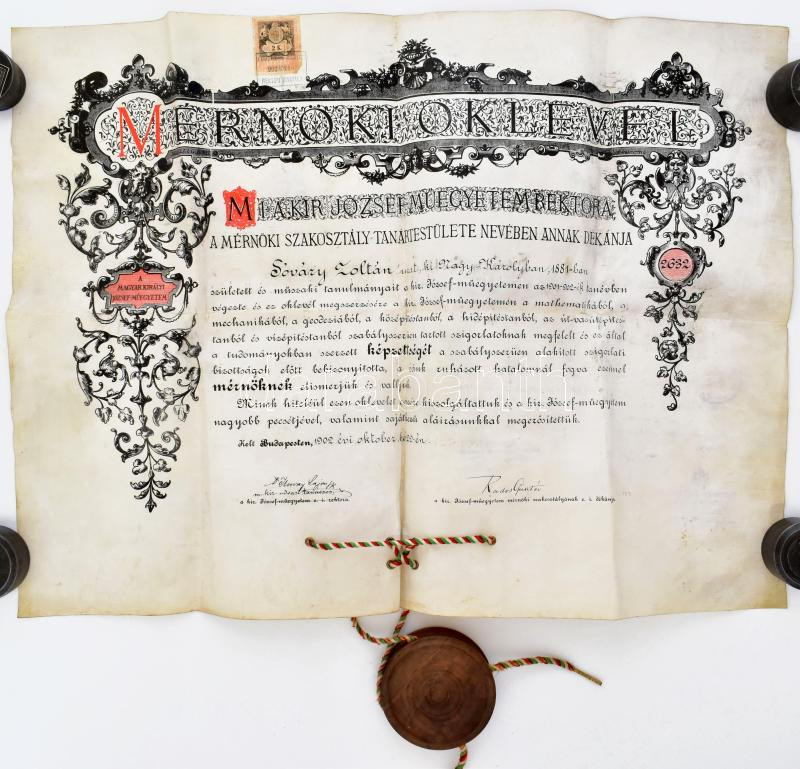 2 K
MÉRNÖKI OKLEVÉL
MI A KIR. JÓZSEF-MŰEGYETEM REKTORA
A MÉRNÖKI SZAKOSZTÁLY TANÁRTESTÜLETE NEVÉBEN ANNAK DÉKÁNJA
Sóváry Zoltán urat, ki Nagy-Károlyban, 1881-ban
született és műszaki tanulmányait a kir. József-műegyetemen az 1901-902-ik tanévben
végezte és ez oklevél megszerzésére a kir. József-műegyetemen a mathematikából, a
mechanikából, a geodéziából, a középítéstanból, a hídépítéstanból, az út-vasútépítés-
tanból és vízépítéstanból szabályszerűen tartott szigorlatoknak megfelelt és ez által
a tudományokban szerzett képzettségét a szabályszerűen alakított szigorlati
bizottságok előtt bebizonyította, a ránk ruházott hatalomnál fogva ezennel
mérnöknek elismerjük és valljuk.
Minek hiteléül ezen oklevelet kiszolgáltattuk és a kir. József-műegyetem
nagyobb pecsétjével, valamint sajátkezű aláírásunkkal megerősítettük.
Kelt Budapesten, 1902 évi október
a kir. József-műegyetem e. i. rektora
Rados Gusztáv
a kir. József-műegyetem mérnöki szakosztályának e. i. dékánja
A
MAGYAR KIRÁLYI
JÓZSEF-MŰEGYETEM
2632